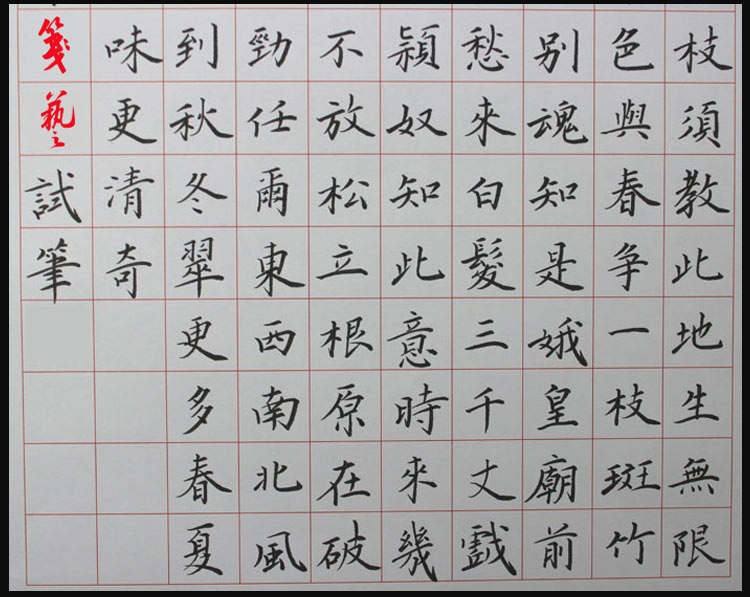 枝須教此地生無限
色與春争一枝斑竹
别魂知是娥皇廟前
愁來白髮三千丈戲
頴奴知此意時來幾
不放松立根原在破
勁任爾東西南北風
到秋冬翠更多春夏
味更清奇
箋藝試筆